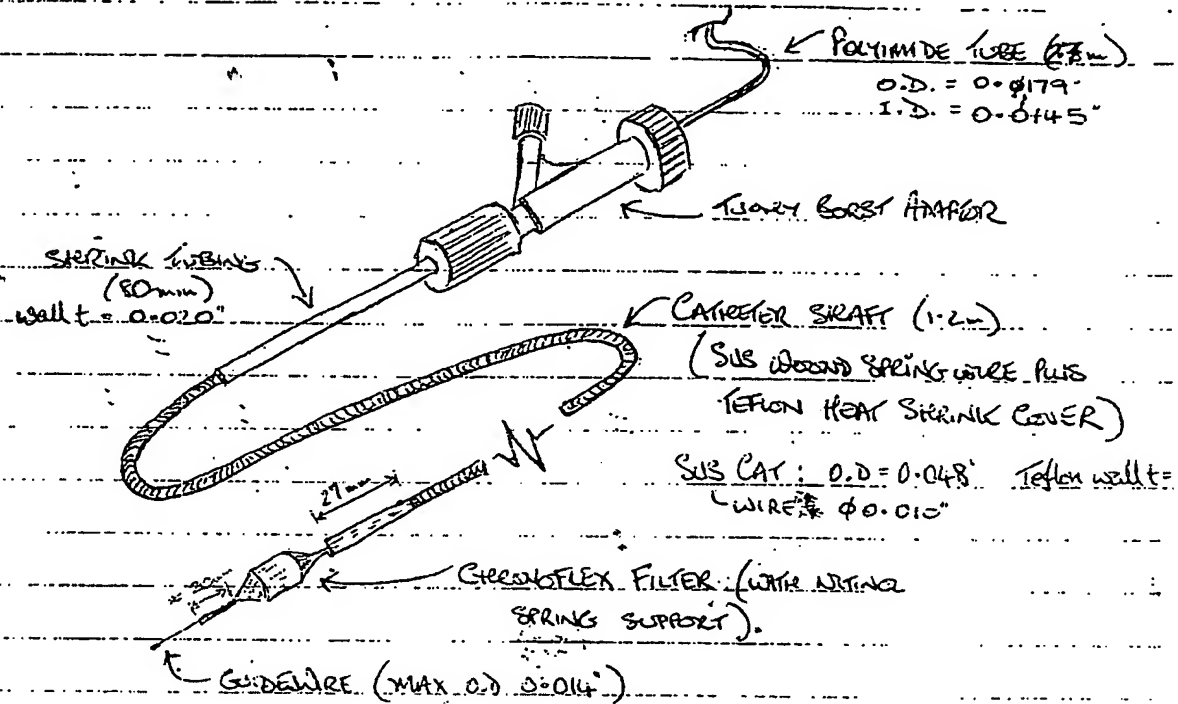 POLYIMIDE TUBE
O.D. = 0.0179"
I.D. = 0.0145"
TUOHY BORST ADAPTOR
SHRINK TUBING
(80mm)
wall t = 0.020"
CATHETER SHAFT (1.2m)
(SUS WOUND SPRING WIRE PLUS
TEFLON HEAT SHRINK COVER)
SUS CAT : O.D = 0.048" Teflon wall t =
WIRE φ0.010"
27mm
CHRONOFLEX FILTER (WITH NITINOL
SPRING SUPPORT).
GUIDEWIRE (MAX O.D 0.014")